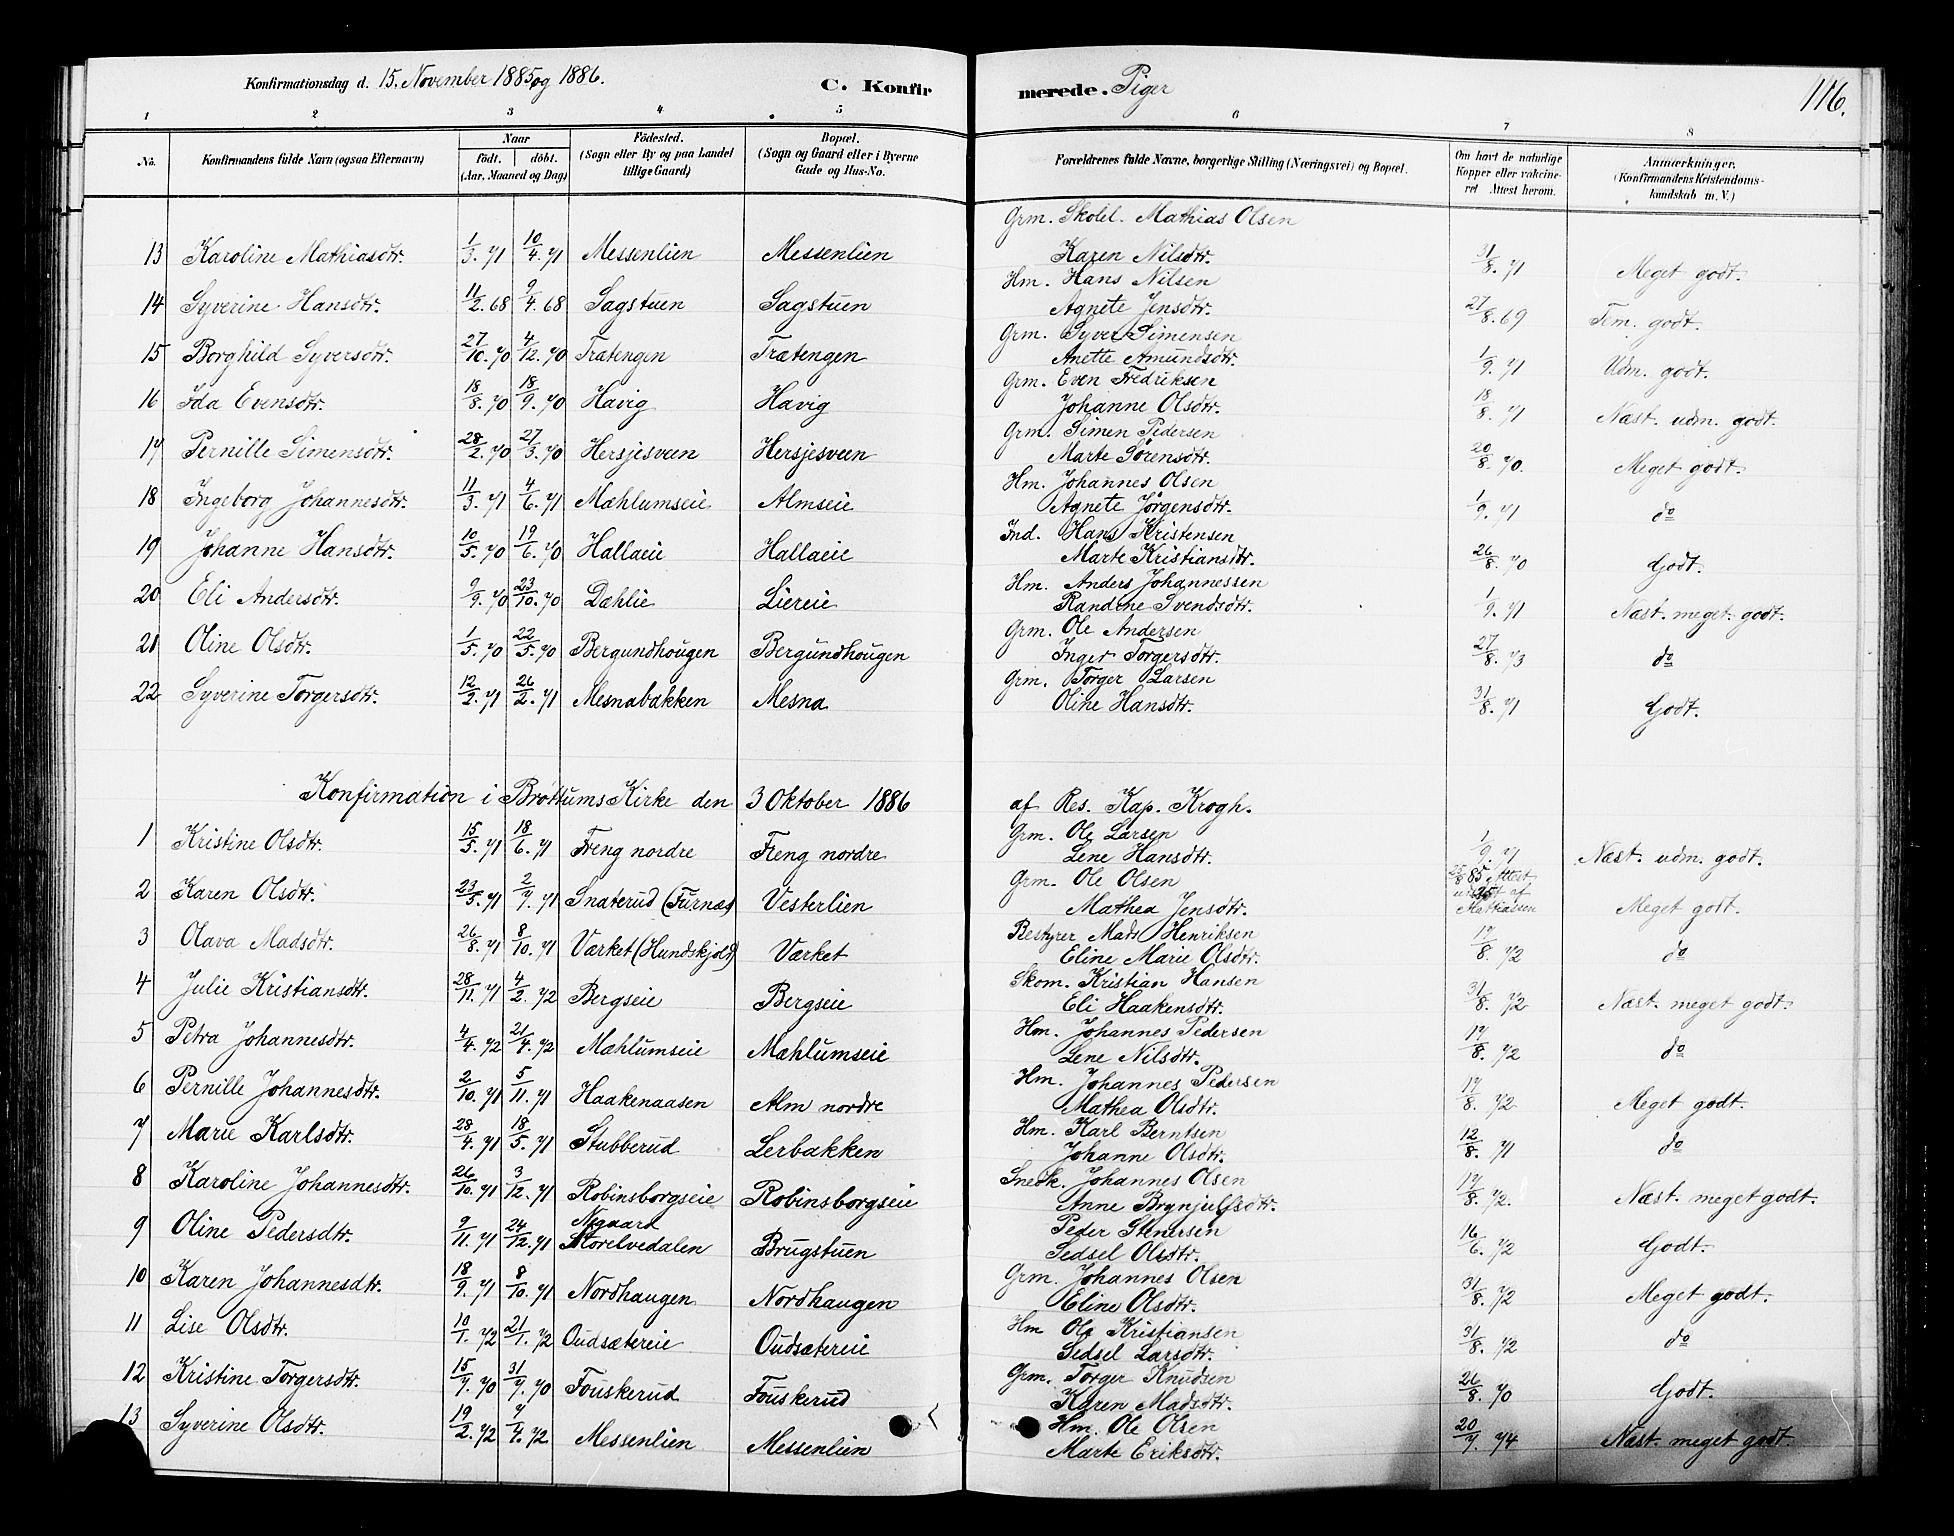 Konfirmationsdag d. 15. November 1885 og 1886. C. Konfirmerede. Piger 116.
1 2 3 4 5 6 7 8
No. Konfirmandens fulde Navn (ogsaa Efternavn) Naar födt. döbt. (Aar, Maaned og Dag) Födested. (Sogn eller By og paa Landet tillige Gaard) Bopæl. (Sogn og Gaard eller i Byerne Gade og Hus-No. Forældrenes fulde Navne, borgerlige Stilling (Næringsvei) og Bopæl. Om havt de naturlige Kopper eller vakcineret Attest herom. Anmærkninger. (Konfirmandens Kristendomskundskab m. V.)
Grm. Skolel. Mathias Olsen
13 Karoline Mathiasdtr. 1/3. 71 10/4. 71 Messenlien Messenlien Karen Nilsdtr. 31/8. 71 Meget godt.
Hm. Hans Nilsen
14 Syverine Hansdtr. 11/2. 68 9/4. 68 Sagstuen Sagstuen Agnete Jensdtr. 27/8. 69 Tem. godt.
Grm. Syver Simensen
15 Borghild Syversdtr. 27/10. 70 4/12. 70 Trætengen Trætengen Anette Amundsdtr. 1/9. 71 Udm. godt.
Grm. Even Fredriksen
16 Ida Evensdtr. 18/8. 70 18/9. 70 Havig Havig Johanne Olsdtr. 18/8. 71 Næst. udm. godt.
Grm. Simen Pedersen
17 Pernille Simensdtr. 28/2. 70 27/3. 70 Hersjesveen Hersjesveen Marte Sørensdtr. 20/8. 70. Meget godt.
Hm. Johannes Olsen
18 Ingeborg Johannesdtr. 11/3. 71 4/6. 71 Mæhlumseie Almseie Agnete Jørgensdtr. 1/9. 71 do
Ind. Hans Kristensen
19 Johanne Hansdtr. 10/5. 70 19/6. 70 Hallaeie Hallaeie Marte Kristiansdtr. 26/8. 70 Godt.
Hm. Anders Johannessen
20 Eli Andersdtr. 9/9. 70 23/10. 70 Dæhlie Liereie Randine Svendsdtr. 1/9. 71 Næst. meget godt.
Grm. Ole Andersen
21 Oline Olsdtr. 1/5. 70 22/5. 70 Bergundhougen Bergundhougen Inger Torgersdtr. 27/8. 73 do
Grm. Torger Larsen
22 Syverine Torgersdtr. 12/2. 71 26/2. 71 Mesnabakken Mesna Oline Hansdtr. 31/8. 71 Godt.
Konfirmation i Brøttums Kirke den 3 Oktober 1886 af Res. Kap. Krogh.
Grm. Ole Larsen
1 Kristine Olsdtr. 15/5. 71 18/6. 71 Freng nordre Freng nordre Lene Hansdtr. 1/9. 71 Næst. udm. godt.
Grm. Ole Olsen
2 Karen Olsdtr. 23/5. 71 2/7. 71 Snaterud (Furnæs) Vesterlien Mathea Jensdtr. 25/8 85, Attest udstedt af Mattiassen Meget godt.
Bestyrer Mads Henriksen
3 Olava Madsdtr. 26/8. 71 8/10. 71 Værket (Hundskjold) Værket Eline Marie Olsdtr. 17/8. 72 do
Skom. Kristian Hansen
4 Julie Kristiansdtr. 28/11. 71 4/2. 72 Bergseie Bergseie Eli Haakensdtr. 31/8. 72 Næst. meget godt.
Hm. Johannes Pedersen
5 Petra Johannesdtr. 4/4. 72 21/4. 72 Mæhlumseie Mæhlumseie Lene Nilsdtr. 17/8. 72 do
Hm. Johannes Pedersen
6 Pernille Johannesdtr. 2/10. 71 5/11. 71 Haakenaasen Alm nordre Mathea Olsdtr. 17/8. 72 Meget godt.
Hm. Karl Berntsen
7 Marie Karlsdtr. 28/4. 71 18/5. 71 Stubberud Lerbakken Johanne Olsdtr. 12/8. 71 do
Snedk. Johannes Olsen
8 Karoline Johannesdtr. 26/10. 71 3/12. 71 Robinsborgseie Robinsborgseie Anne Brynjulfsdtr. 17/8. 72. Næst. meget godt.
Nygaard Peder Stenersen
9 Oline Pedersdtr. 9/11. 71 24/12. 71 Storelvedalen Brugstuen Sedsel Olsdtr. 16/6. 72 Godt.
Grm. Johannes Olsen
10 Karen Johannesdtr. 18/9. 71 8/10. 71 Nordhaugen Nordhaugen Eline Olsdtr. 31/8. 72 Meget godt.
Hm Ole Kristiansen
11 Lise Olsdtr. 10/1. 72 21/1. 72 Oudsætereie Oudsætereie Sedsel Larsdtr. 31/8. 72 do
Grm. Torger Knudsen
12 Kristine Torgersdtr. 15/7. 70 31/7. 70 Fouskerud Fouskerud Karen Madsdtr. 26/8. 70 Godt.
Hm. Ole Olsen
13 Syverine Olsdtr. 19/2. 72 7/4. 72 Messenlien Messenlien Marte Eriksdtr. 20/7. 74 Næst. meget godt.